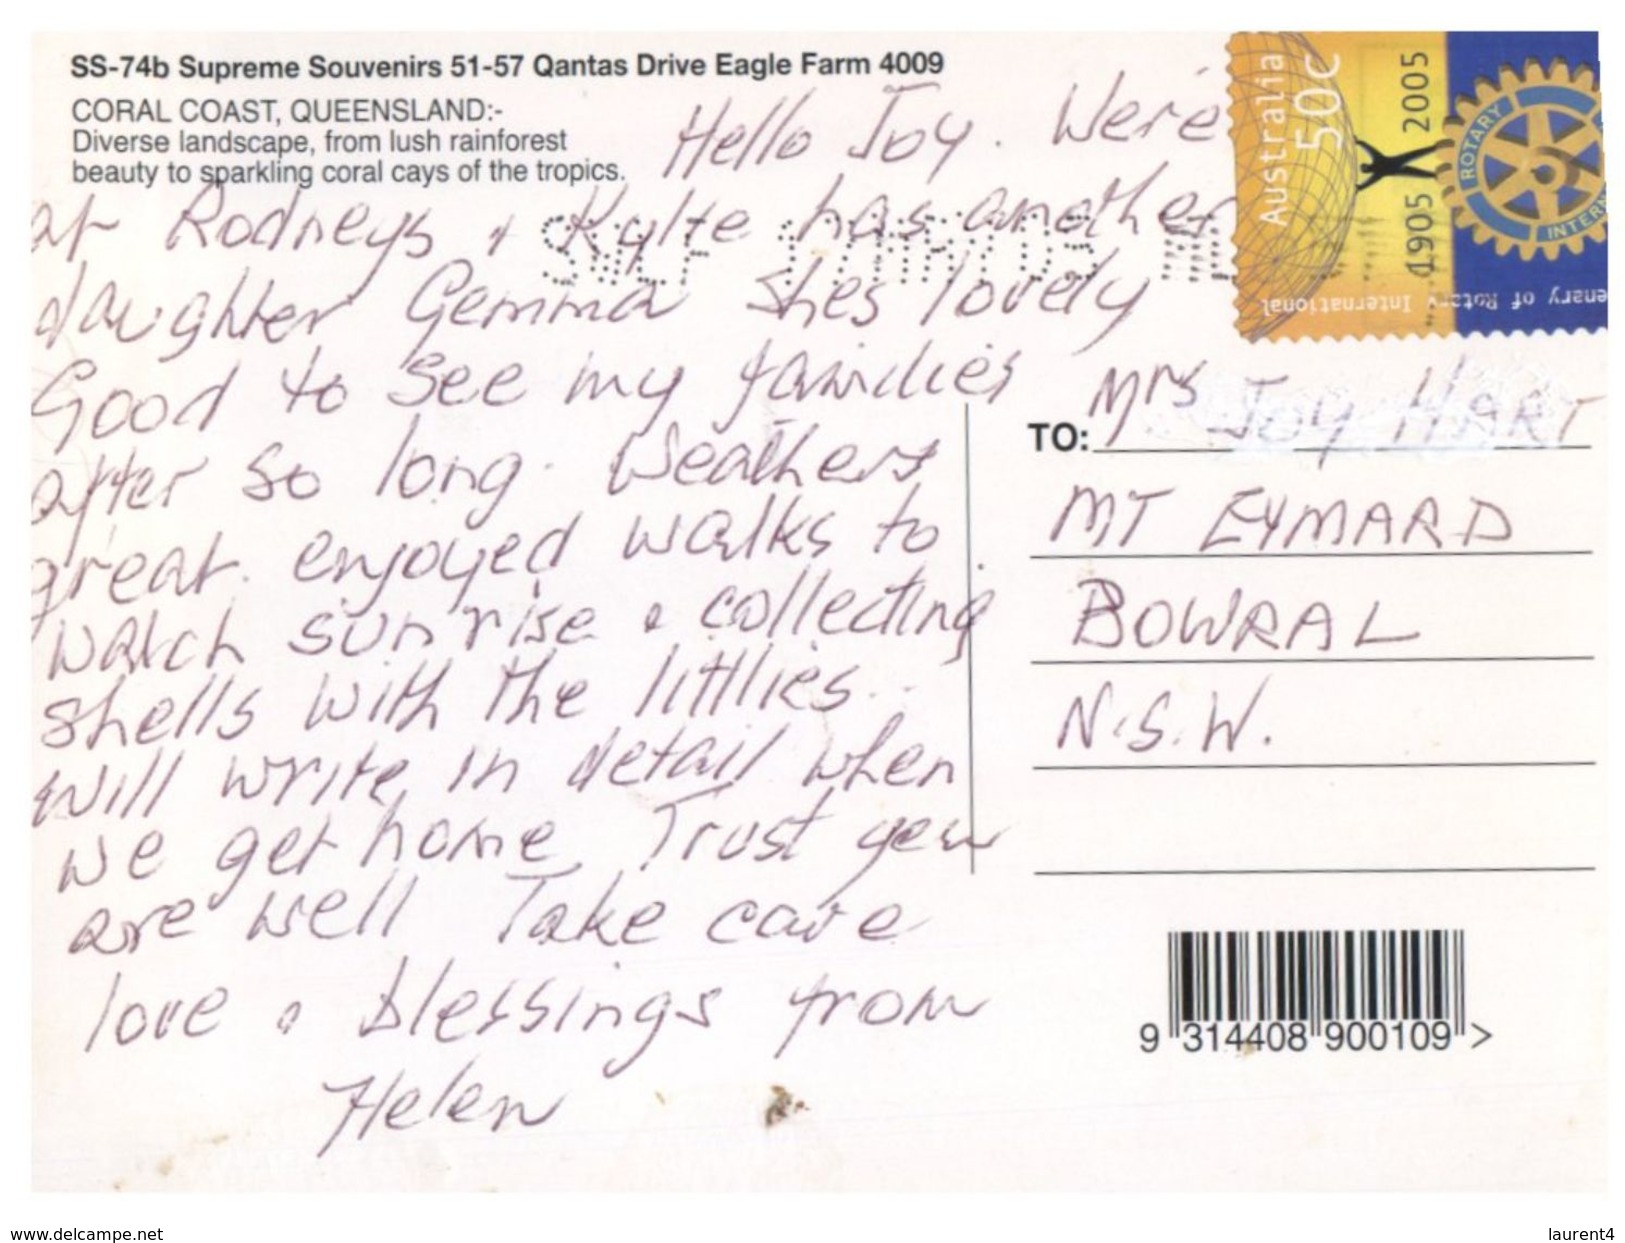 SS-74b Supreme Souvenirs 51-57 Qantas Drive Eagle Farm 4009
CORAL COAST, QUEENSLAND:-
Diverse landscape, from lush rainforest
beauty to sparkling coral cays of the tropics.
Hello Joy. We're
at Rodneys & Kylie has another
daughter Gemma shes lovely
Good to see my families
after so long. Weathers
great. enjoyed walks to
watch sunrise & collecting
shells with the littlies..
will write in detail when
we get home. Trust you
are well Take care
love & blessings from
Helen
Australia
50c
1905 2005
ROTARY
INTERN
enary of Rotary International
TO: Mrs Joy HART
MT EYMARD
BOWRAL
N.S.W.
9 314408 900109 >
www.delcampe.net
laurent4